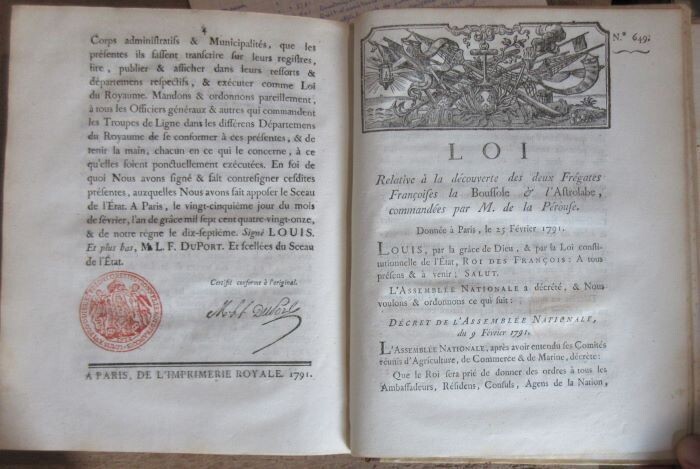 4
Corps administratifs & Municipalités, que les
présentes ils fassent transcrire sur leurs registres,
lire, publier & afficher dans leurs ressorts &
départemens respectifs, & exécuter comme Loi
du Royaume. Mandons & ordonnons pareillement,
à tous les Officiers généraux & autres qui commandent
les Troupes de Ligne dans les différens Départemens
du Royaume de se conformer à ces présentes, & de
tenir la main, chacun en ce qui le concerne, à ce
qu'elles soient ponctuellement exécutées. En foi de
quoi Nous avons signé & fait contresigner cesdites
présentes, auxquelles Nous avons fait apposer le Sceau
de l'État. A Paris, le vingt-cinquième jour du mois
de février, l'an de grâce mil sept cent quatre-vingt-onze,
& de notre règne le dix-septième. Signé LOUIS.
Et plus bas, M. L. F. DUPORT. Et scellées du Sceau
de l'État.
Certifié conforme à l'original.
A PARIS, DE L'IMPRIMERIE ROYALE. 1791.
N.° 649.
LOI
Relative à la découverte des deux Frégates
Françoises la Boussole & l'Astrolabe,
commandées par M. de la Pérouse.
Donnée à Paris, le 25 Février 1791.
LOUIS, par la grâce de Dieu, & par la Loi consti-
tutionnelle de l'État, ROI DES FRANÇOIS: A tous
présens & à venir; SALUT.
L'ASSEMBLÉE NATIONALE a décrété, & Nous
voulons & ordonnons ce qui suit:
DÉCRET DE L'ASSEMBLÉE NATIONALE,
du 9 Février 1791.
L'ASSEMBLÉE NATIONALE, après avoir entendu ses Comités
réunis d'Agriculture, de Commerce & de Marine, décrète:
Que le Roi sera prié de donner des ordres à tous les
Ambassadeurs, Résidens, Consuls, Agens de la Nation,